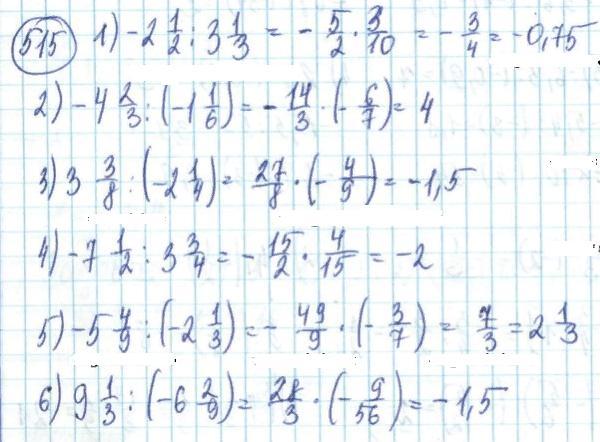 515 1) -2 1/2 : 3 1/3 = - 5/2 · 3/10 = - 3/4 = -0,75
2) -4 2/3 : (-1 1/6) = - 14/3 · (- 6/7) = 4
3) 3 3/8 : (-2 1/4) = 27/8 · (- 4/9) = -1,5
4) -7 1/2 : 3 3/4 = - 15/2 · 4/15 = -2
5) -5 4/9 : (-2 1/3) = - 49/9 · (- 3/7) = 7/3 = 2 1/3
6) 9 1/3 : (-6 2/9) = 28/3 · (- 9/56) = -1,5